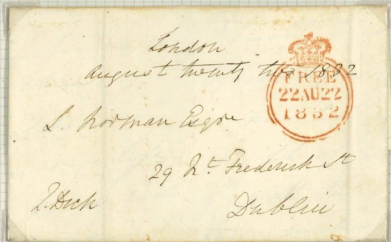 London
August twenty two 1832
FREE
22AU22
1832
L. Norman Esqre
29 Nth Frederick St
Dublin